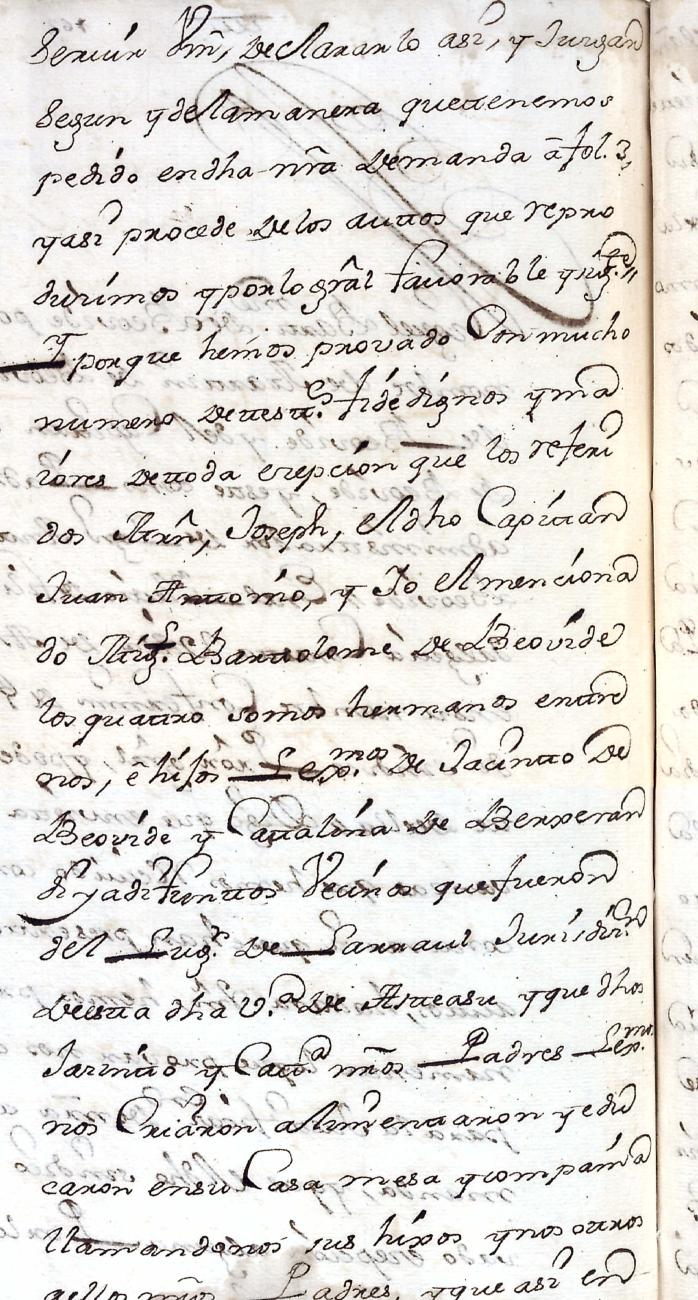 Servir Vm, declararlo asi, y Juzgar
Segun y dela manera que tenemos
pedido en dha nra demanda a fol. 3,
y asi procede de los auttos que repro
ducimos y por lo gral favorable y sigte
Y porque hemos provado Con mucho
numero de testigos fidedignos y ma
iores de toda exepcion que los referi
dos Mrn, Joseph, el dho Capittan
Juan Anttonio, y Yo el menciona
do Mig.l Barttolome de Beovide
los quattro somos hermanos entre
nos, e hijos Lexmos de Jacintto de
Beovide y Cattalina de Berxeran
di ya difunttos Vecinos que fueron
del Lugr de Larraul Jurisdicn
de estta dha v.a de Astteasu y que dhos
Jacintto y Catt.a nros Padres Lexmos
nos Criaron alimenttaron y edu
caron en su Casa mesa y compañia
llamandonos sus hixos y nosottros
a ellos nros Padres, y que asi en